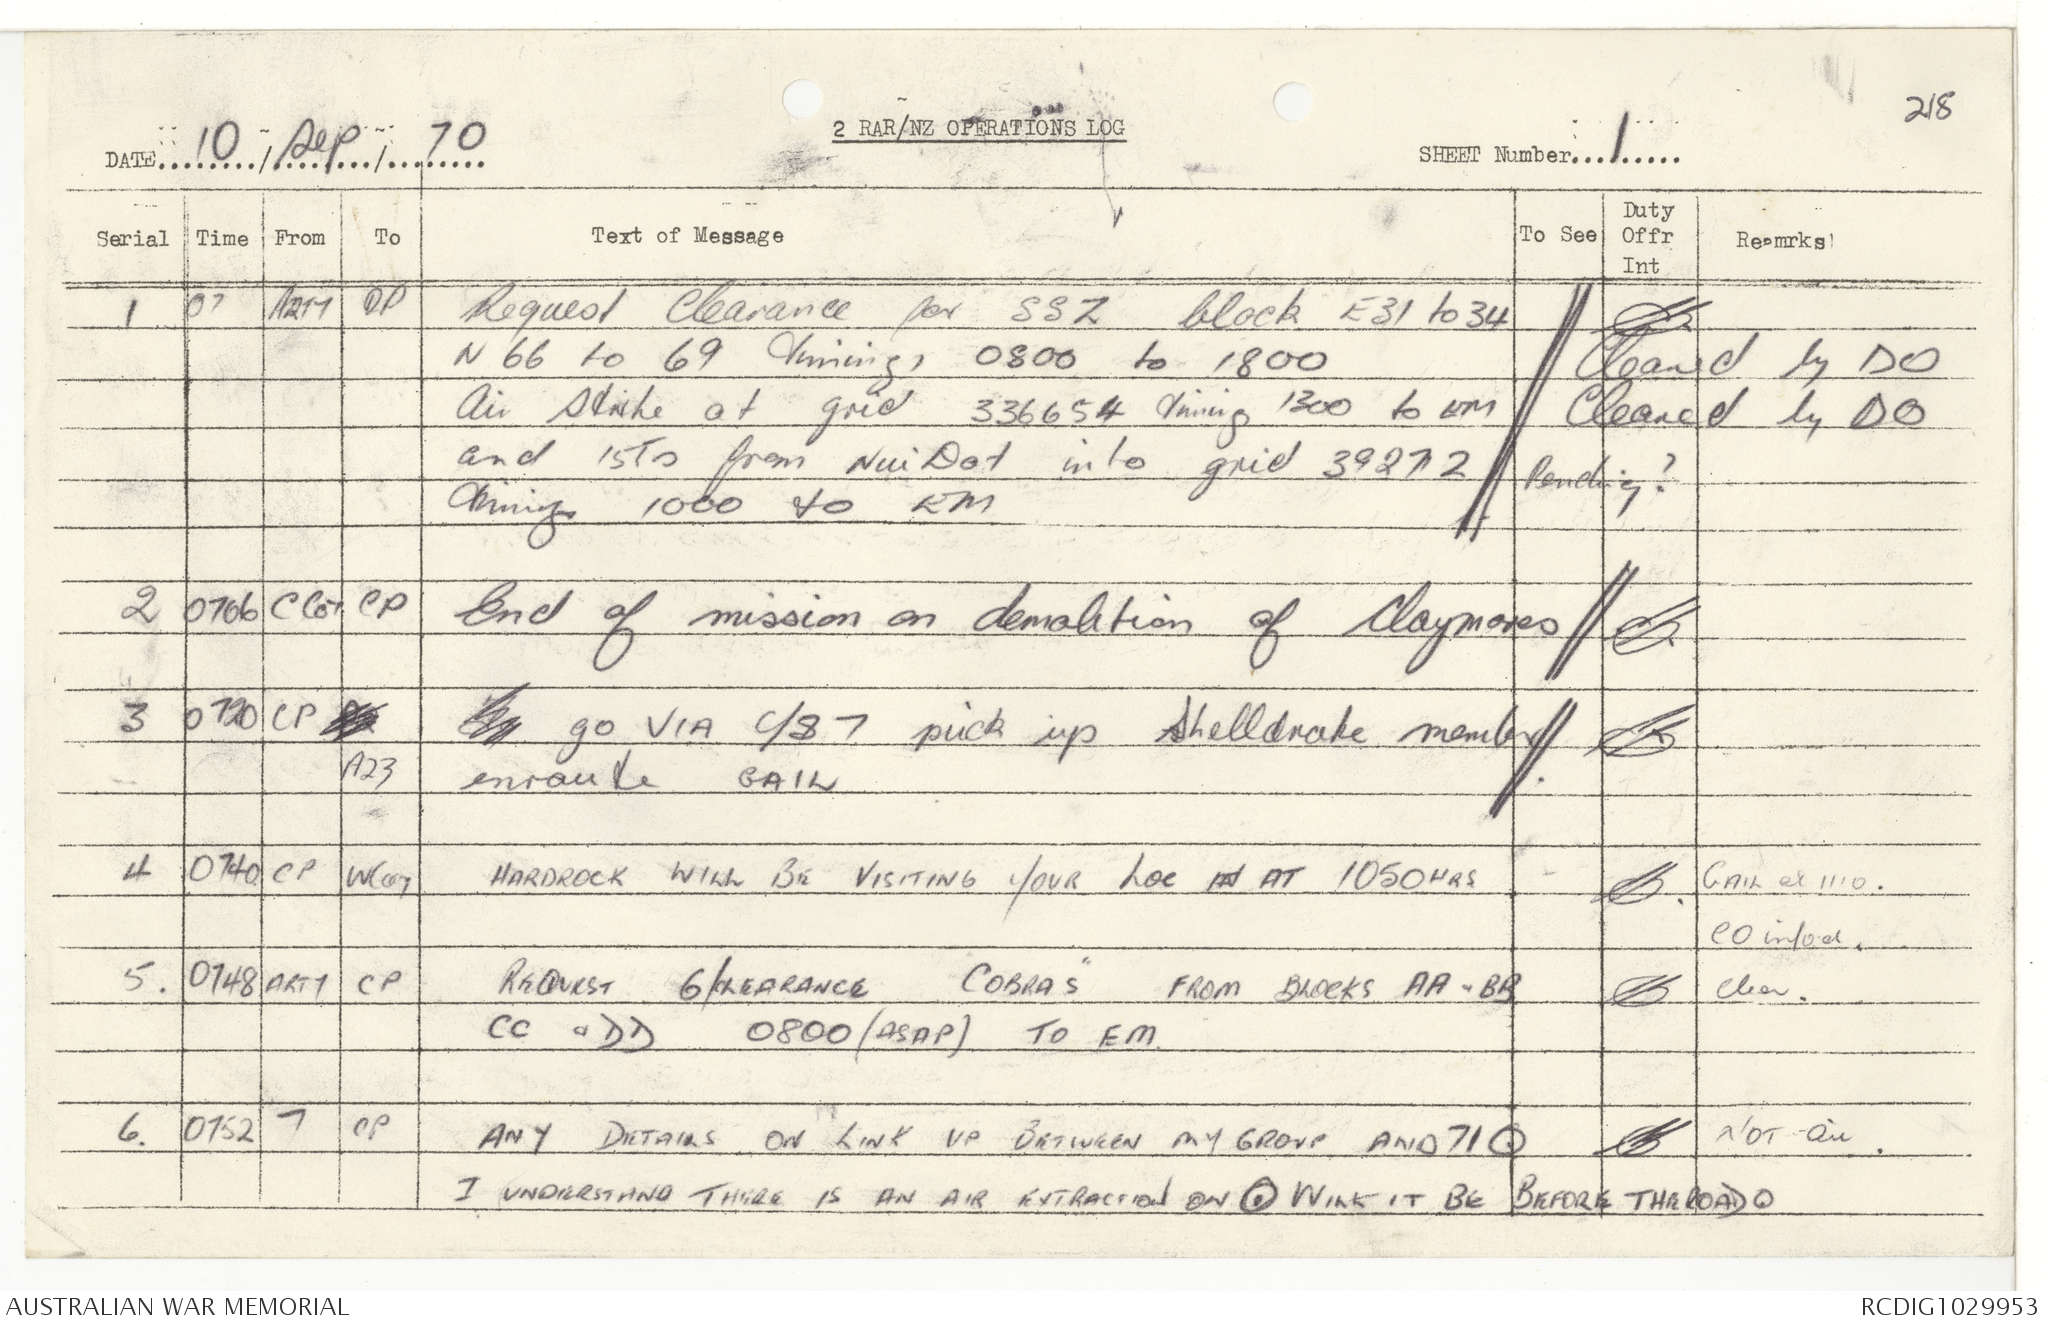 218
2 RAR/NZ OPERATIONS LOG
DATE 10 / Sep / 70
SHEET Number 1
Serial Time From To Text of Message To See Duty Offr Int Remrks
1 07 ARTY CP Request Clearance for SSZ block E31 to 34
N 66 to 69 timings 0800 to 1800 Cleared by DO
Air Strike at grid 336654 timing 1300 to EM Cleared by DO
and from Nui Dat into grid 39272 Pending?
timings 1000 to EM
2 0706 C Coy CP End of mission on demolition of Claymores
3 0720 CP go VIA C/S 7 pick up Shelldrake member
A23 enroute GAIL
4 0740 CP W Coy HARDROCK WILL BE VISITING YOUR LOC AT 1050HRS GAIL at 1110.
CO infod.
5. 0748 ARTY CP REQUEST CLEARANCE COBRAS" FROM BLOCKS AA - BB clear.
CC DD 0800 (ASAP) TO EM
6. 0752 7 CP ANY DETAILS ON LINK UP BETWEEN MY GROUP AND 71 NOT
I UNDERSTAND THERE IS AN AIR EXTRACTION ON WILL IT BE BEFORE THE ROAD
AUSTRALIAN WAR MEMORIAL
RCDIG1029953